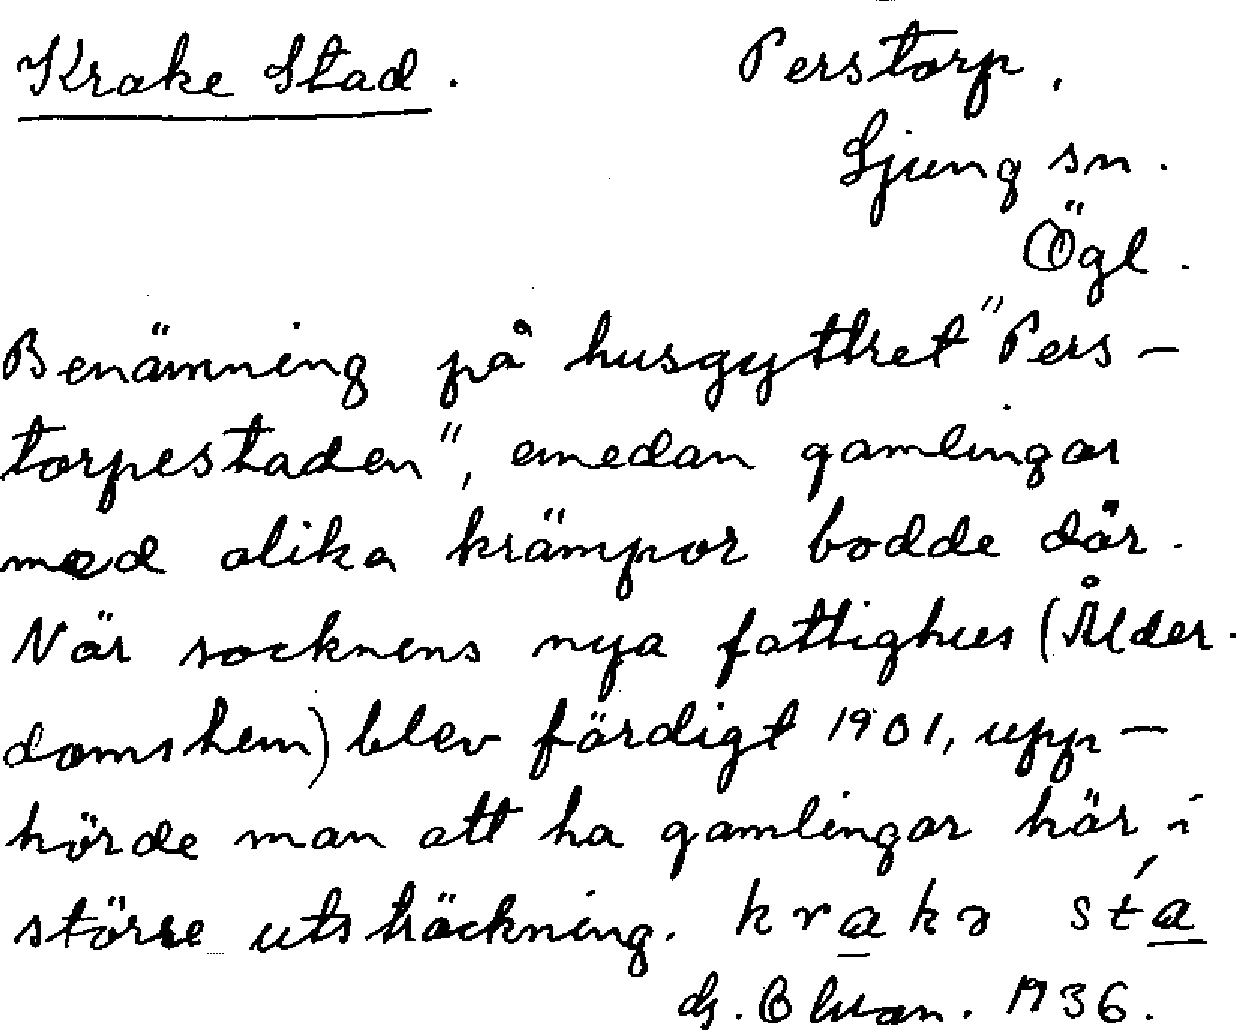 Krake Stad. Perstorp,
Ljung sn.
Ögl.
Benämning på husgyttret "Pers-
torpestaden", emedan gamlingar
med olika krämpor bodde där.
När socknens nya fattighus (Ålder-
domshem) blev färdigt 1901, upp-
hörde man att ha gamlingar här i
större utsträckning. krakə sta
1936.